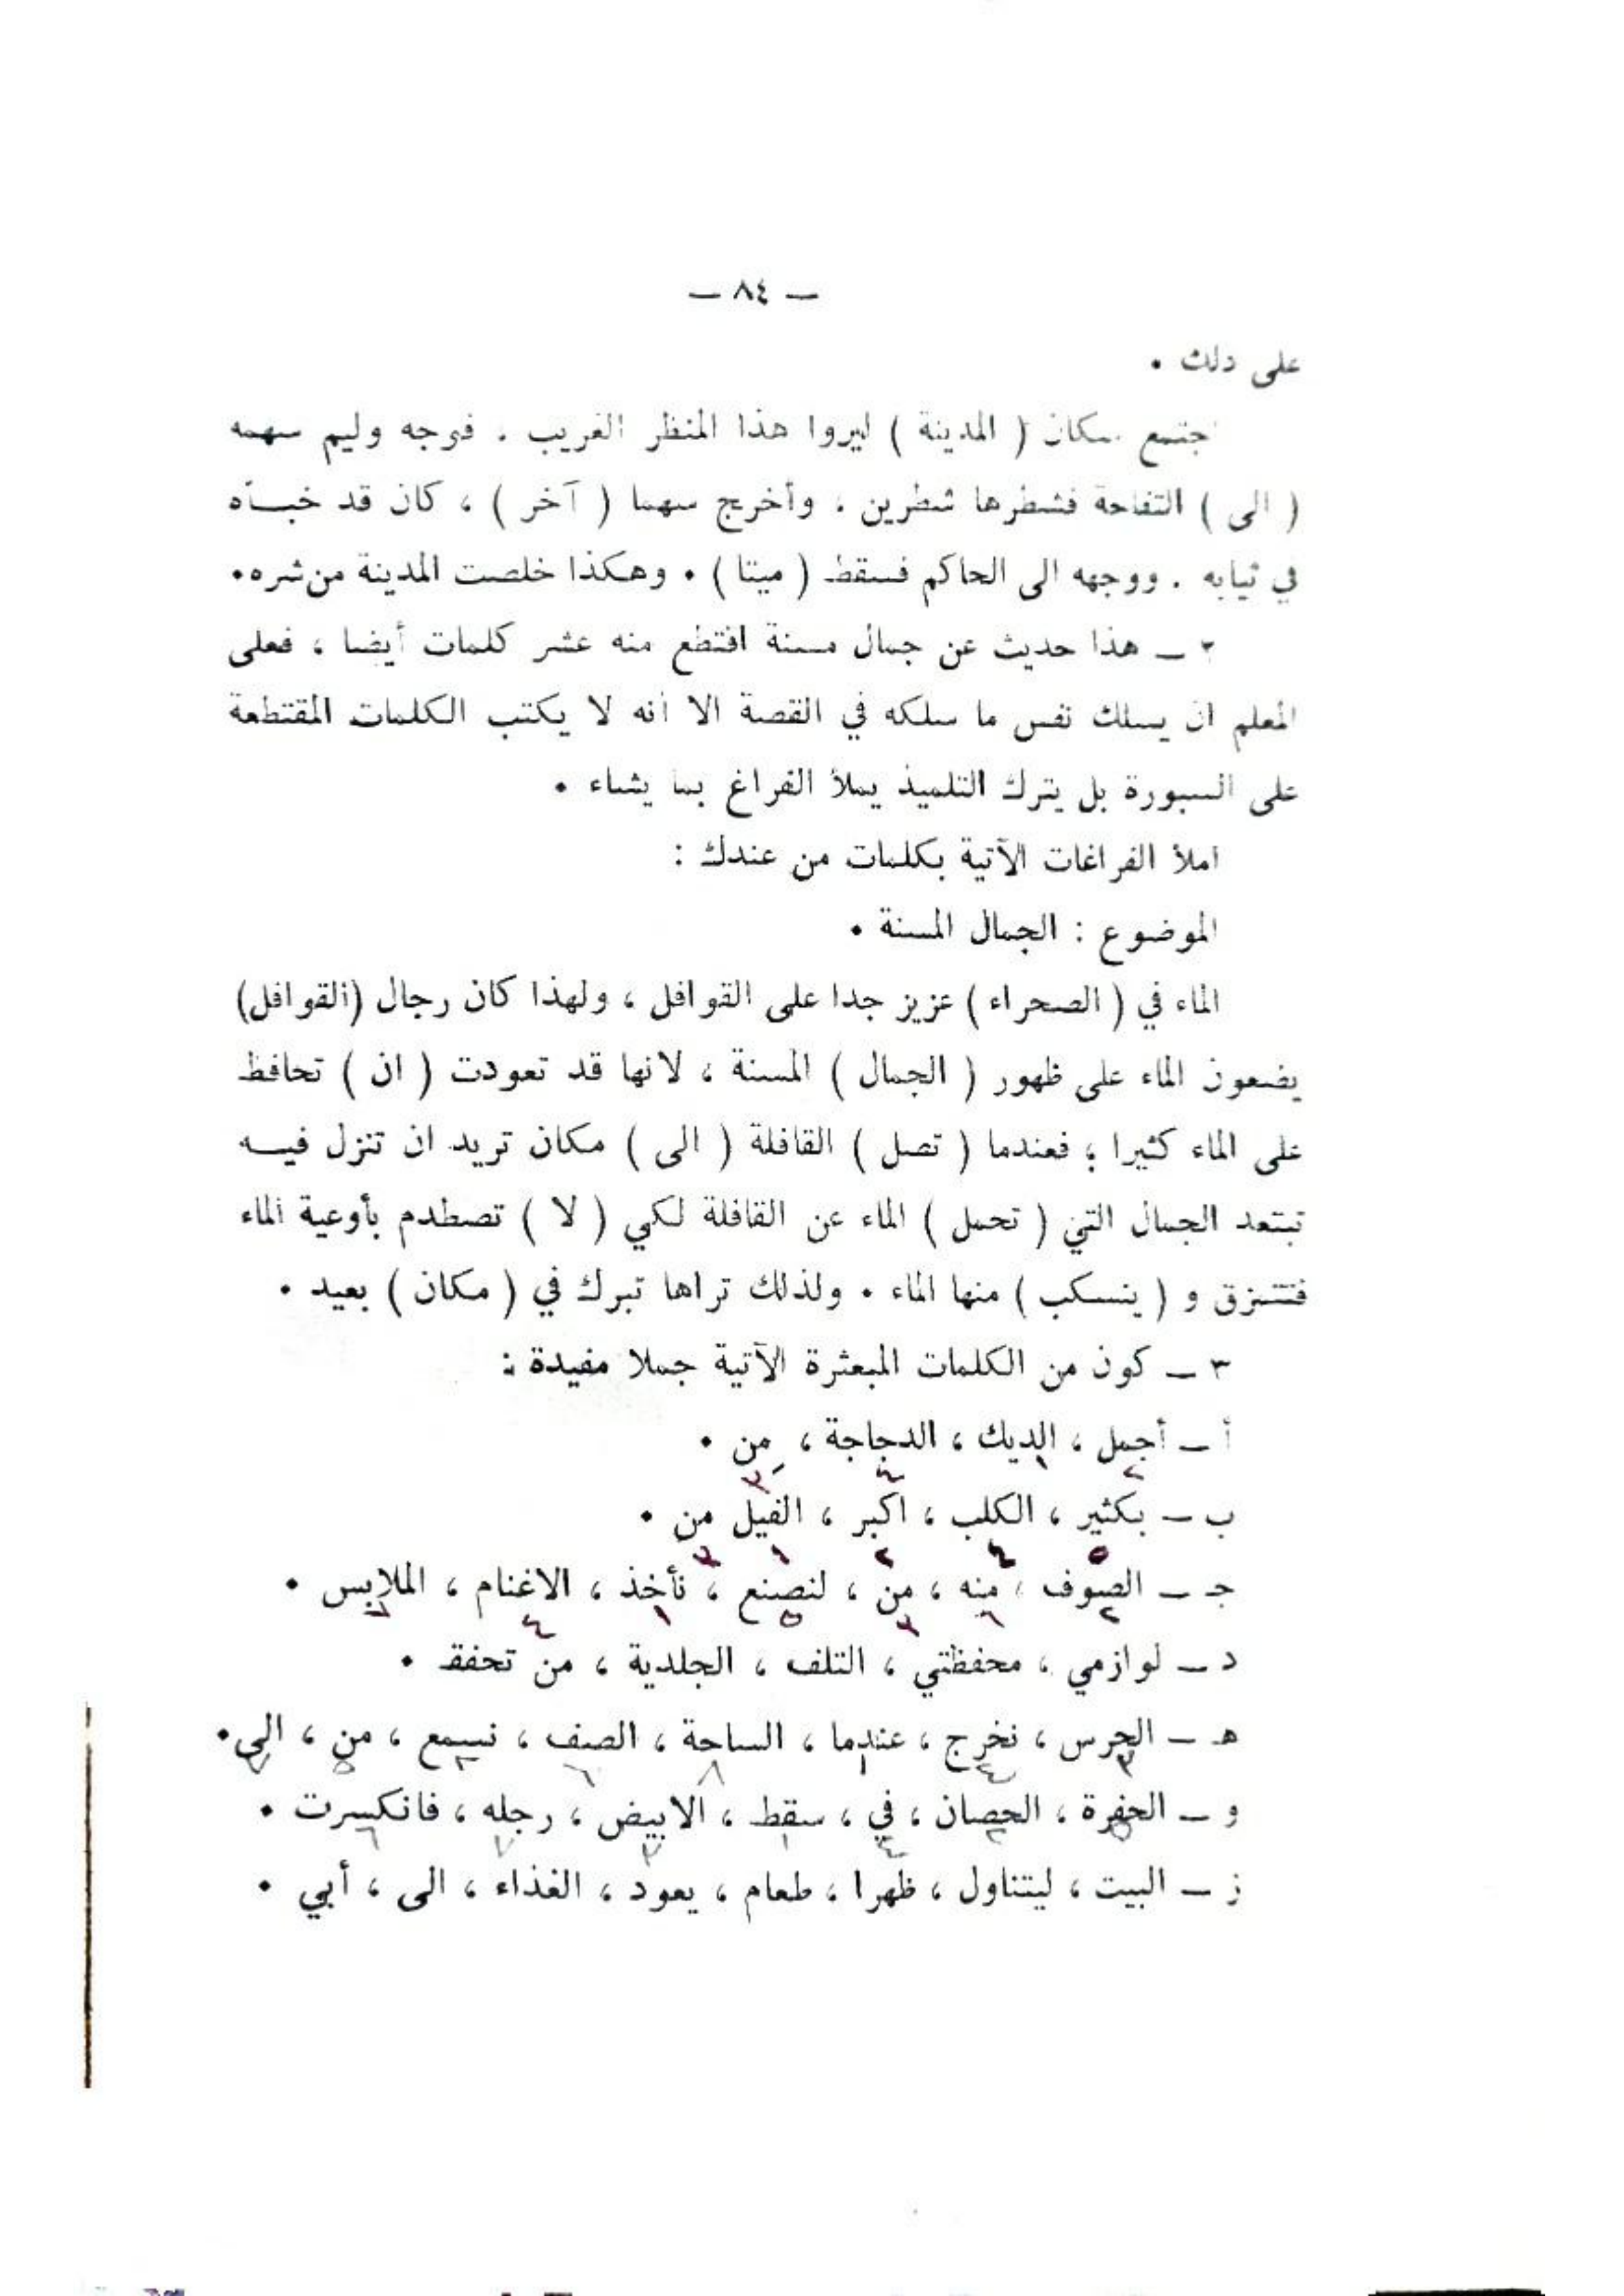 — ٨٤ —
على ذلك .
اجتمع سكان ( المدينة ) ليروا هذا المنظر الغريب . فوجه وليم سهمه
( الى ) التفاحة فشطرها شطرين ، وأخرج سهما ( آخر ) ، كان قد خبأه
في ثيابه . ووجهه الى الحاكم فسقط ( ميتا ) . وهكذا خلصت المدينة من شره .
٢ — هذا حديث عن جمال مسنة اقتطع منه عشر كلمات أيضا ، فعلى
المعلم ان يسلك نفس ما سلكه في القصة الا أنه لا يكتب الكلمات المقتطعة
على السبورة بل يترك التلميذ يملأ الفراغ بما يشاء .
املأ الفراغات الآتية بكلمات من عندك :
الموضوع : الجمال المسنة .
الماء في ( الصحراء ) عزيز جدا على القوافل ، ولهذا كان رجال (القوافل)
يضعون الماء على ظهور ( الجمال ) المسنة ، لانها قد تعودت ( ان ) تحافظ
على الماء كثيرا ؛ فعندما ( تصل ) القافلة ( الى ) مكان تريد ان تنزل فيه
تبتعد الجمال التي ( تحمل ) الماء عن القافلة لكي ( لا ) تصطدم بأوعية الماء
فتتمزق و ( ينسكب ) منها الماء . ولذلك تراها تبرك في ( مكان ) بعيد .
٣ — كون من الكلمات المبعثرة الآتية جملا مفيدة :
أ — أجمل ، الديك ، الدجاجة ، من .
٢ ١ ٤ ٣
ب — بكثير ، الكلب ، اكبر ، الفيل من .
٥ ٤ ٢ ١ ٣
جـ — الصوف ، منه ، من ، لنصنع ، نأخذ ، الاغنام ، الملابس .
٢ ٦ ٣ ٥ ١ ٤ ٧
د — لوازمي ، محفظتي ، التلف ، الجلدية ، من تحفظ .
هـ — الجرس ، نخرج ، عندما ، الساحة ، الصف ، نسمع ، من ، الى .
٣ ٤ ١ ٨ ٦ ٢ ٥ ٧
و — الحفرة ، الحصان ، في ، سقط ، الابيض ، رجله ، فانكسرت .
٥ ٢ ٤ ١ ٣ ٧ ٦
ز — البيت ، ليتناول ، ظهرا ، طعام ، يعود ، الغذاء ، الى ، أبي .